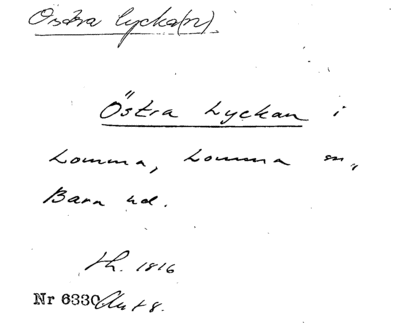 Östra lycka(n).
Östra Lyckan i
Lomma, Lomma sn,
Bara hd.
h. 1816
Nr 6330